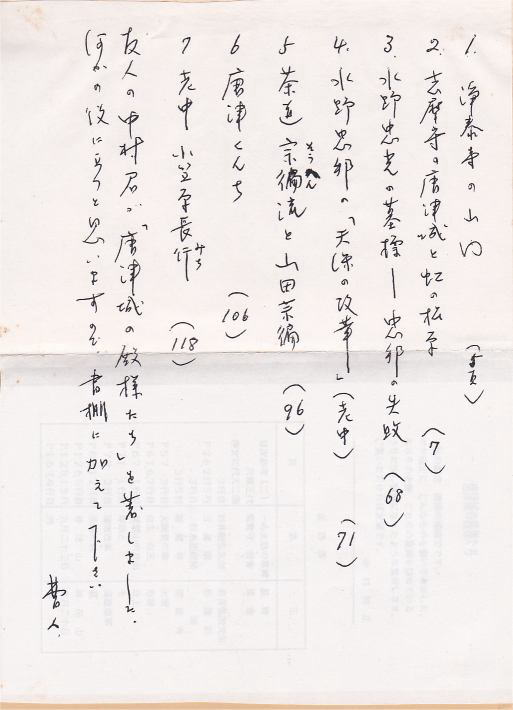 1. 浄泰寺の山門 (5頁)
2. 志摩守の唐津城と虹の松原 (7)
3. 水野忠光の墓標ー忠邦の失政 (68)
4. 水野忠邦の「天保の改革」(老中) (71)
5 茶道 宗徧流と山田宗徧 (96)
そうへん
6 唐津くんち (106)
7 老中 小笠原長行 (118)
みち
友人の中村君が「唐津城の殿様たち」を著しまして、
何かの役に立つと思いますので、書棚に加えて下さい